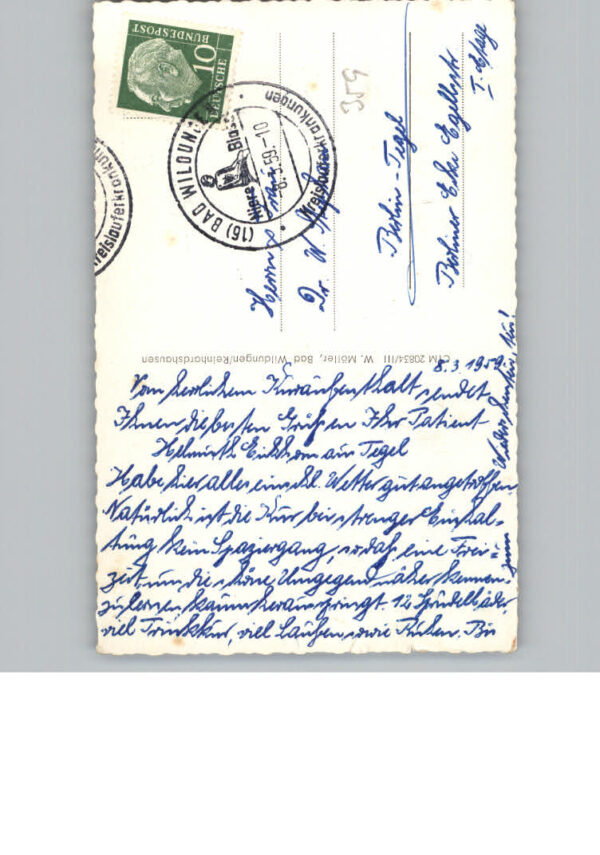 10
DEUTSCHE
BUNDESPOST
(16) BAD WILDUN
Niere
Blas
-8.3.59.-10
Kreislauferkrankungen
reislauferkrankun
359
Herrn
Dr. W.
Berlin-Tegel
Berliner Ecke Egellsstr
I. Etage
CTM 20834/III W. Möller, Bad Wildungen/Reinhardshausen
8.3.1959.
Vom herrlichem Kuraufenthalt sendet
Ihnen die besten Grüße Ihr Patient
Helmuth aus Tegel
Habe hier alles einschl. Wetter gut angetroffen
Natürlich ist die Kur bei strenger Einhal-
tung kein Spaziergang, sodaß eine Frei-
zeit, um die schöne Umgegend näher kennen-
zulernen kaum herausspringt. 12 Sprudelbäder
viel Trinkkur, viel Laufen sowie Ruhen. Bis
zum